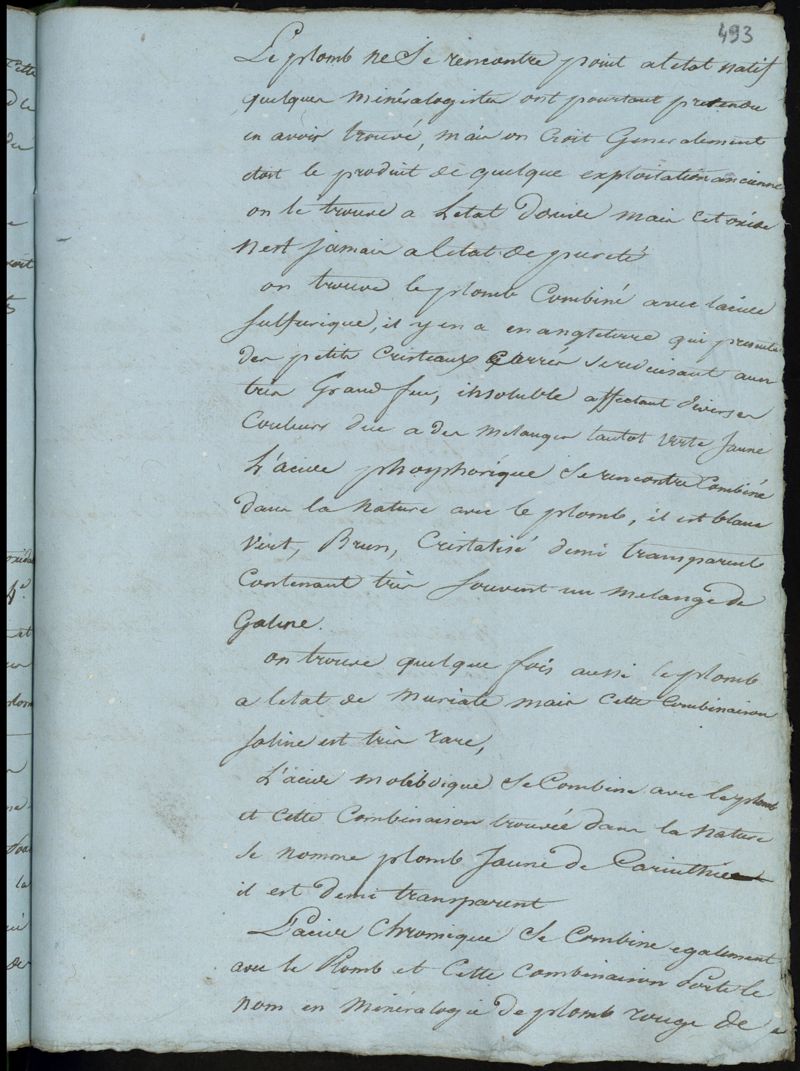 493
Le plomb ne se rencontre point a letat natif
quelques minéralogistes ont pourtant pretendu
en avoir trouvé, mais on croit Generalement
etoit le produit de quelque exploitation ancienne
on le trouve a Letat doxide mais cet oxide
n'est jamais a letat de pureté
on trouve le plomb Combiné avec lacide
sulfurique, il y en a en angleterre qui presente
des petits Cristeaux Carrés se reduisant aux
très Grand feu, insoluble affectant diverses
Couleurs due a des melanges tantot verte Jaune
L'acide phosphorique se rencontre Combiné
dans la nature avec le plomb, il est blanc
vert, Brun, Cristalisé demi transparent
Contenant très souvent un melange de
Galene.
on trouve quelque fois aussi le plomb
a letat de muriate mais cette Combinaison
saline est très rare,
L'acide molibdique se Combine avec le plomb
et cette Combinaison trouvée dans la nature
se nomme plomb Jaune de Carinthie
il est demi transparent
L'acide Chromique se Combine egalement
avec le Plomb et Cette Combinaison porte le
nom en minéralogie de plomb rouge de